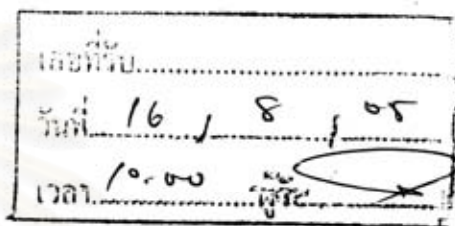 เลขที่รับ....................
วันที่ 16 / 8 / 05
เวลา 10.00 ผู้รับ